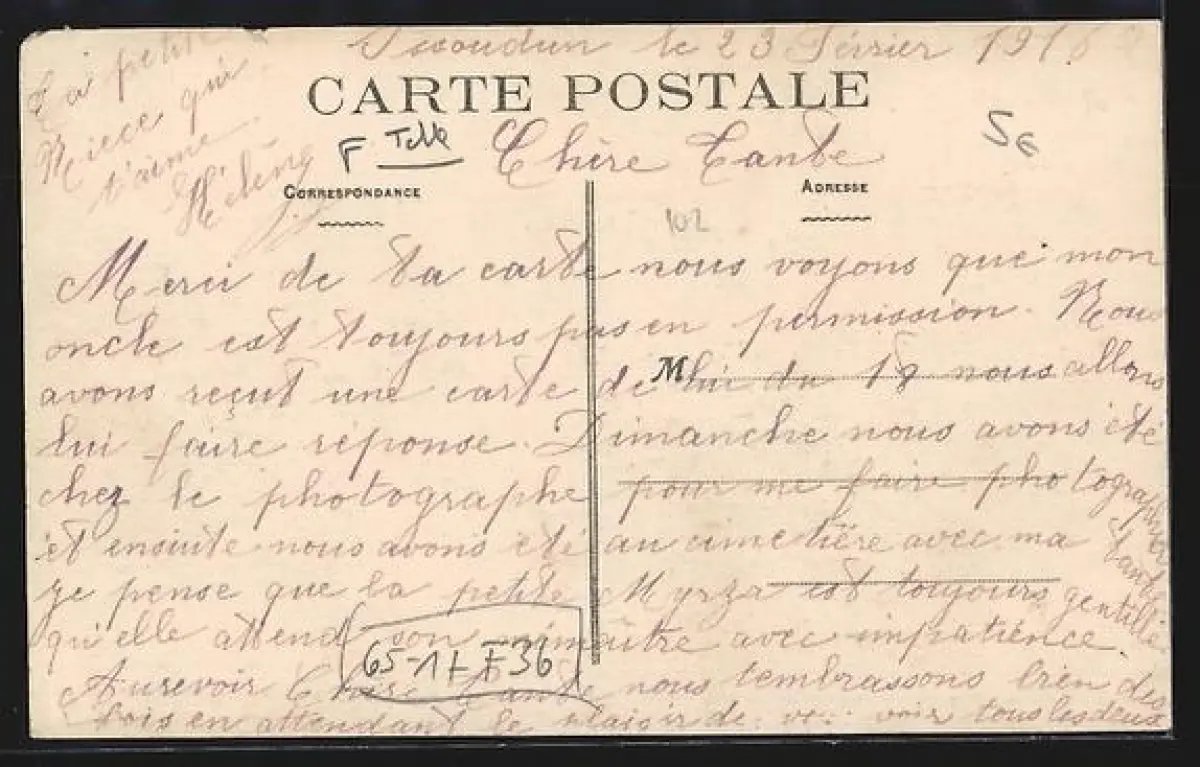 Issoudun le 23 Février 1916
CARTE POSTALE
F Telle
5€
Chère Tante
CORRESPONDANCE
ADRESSE
102
Merci de ta carte nous voyons que mon
oncle est toujours pas en permission. Nous
avons reçut une carte de lui du 18 nous allons
M
lui faire réponse. Dimanche nous avons été
chez le photographe pour me faire photographier
et ensuite nous avons été au cimetière avec ma tante
je pense que la petite Myrza est toujours gentille
qu'elle attend son maître avec impatience.
65-1 36
Aurevoir Chère Tante nous t'embrassons bien des
fois en attendant le plaisir de voir tous les deux
Ta petite
Niece qui
t'aime.
Hélène